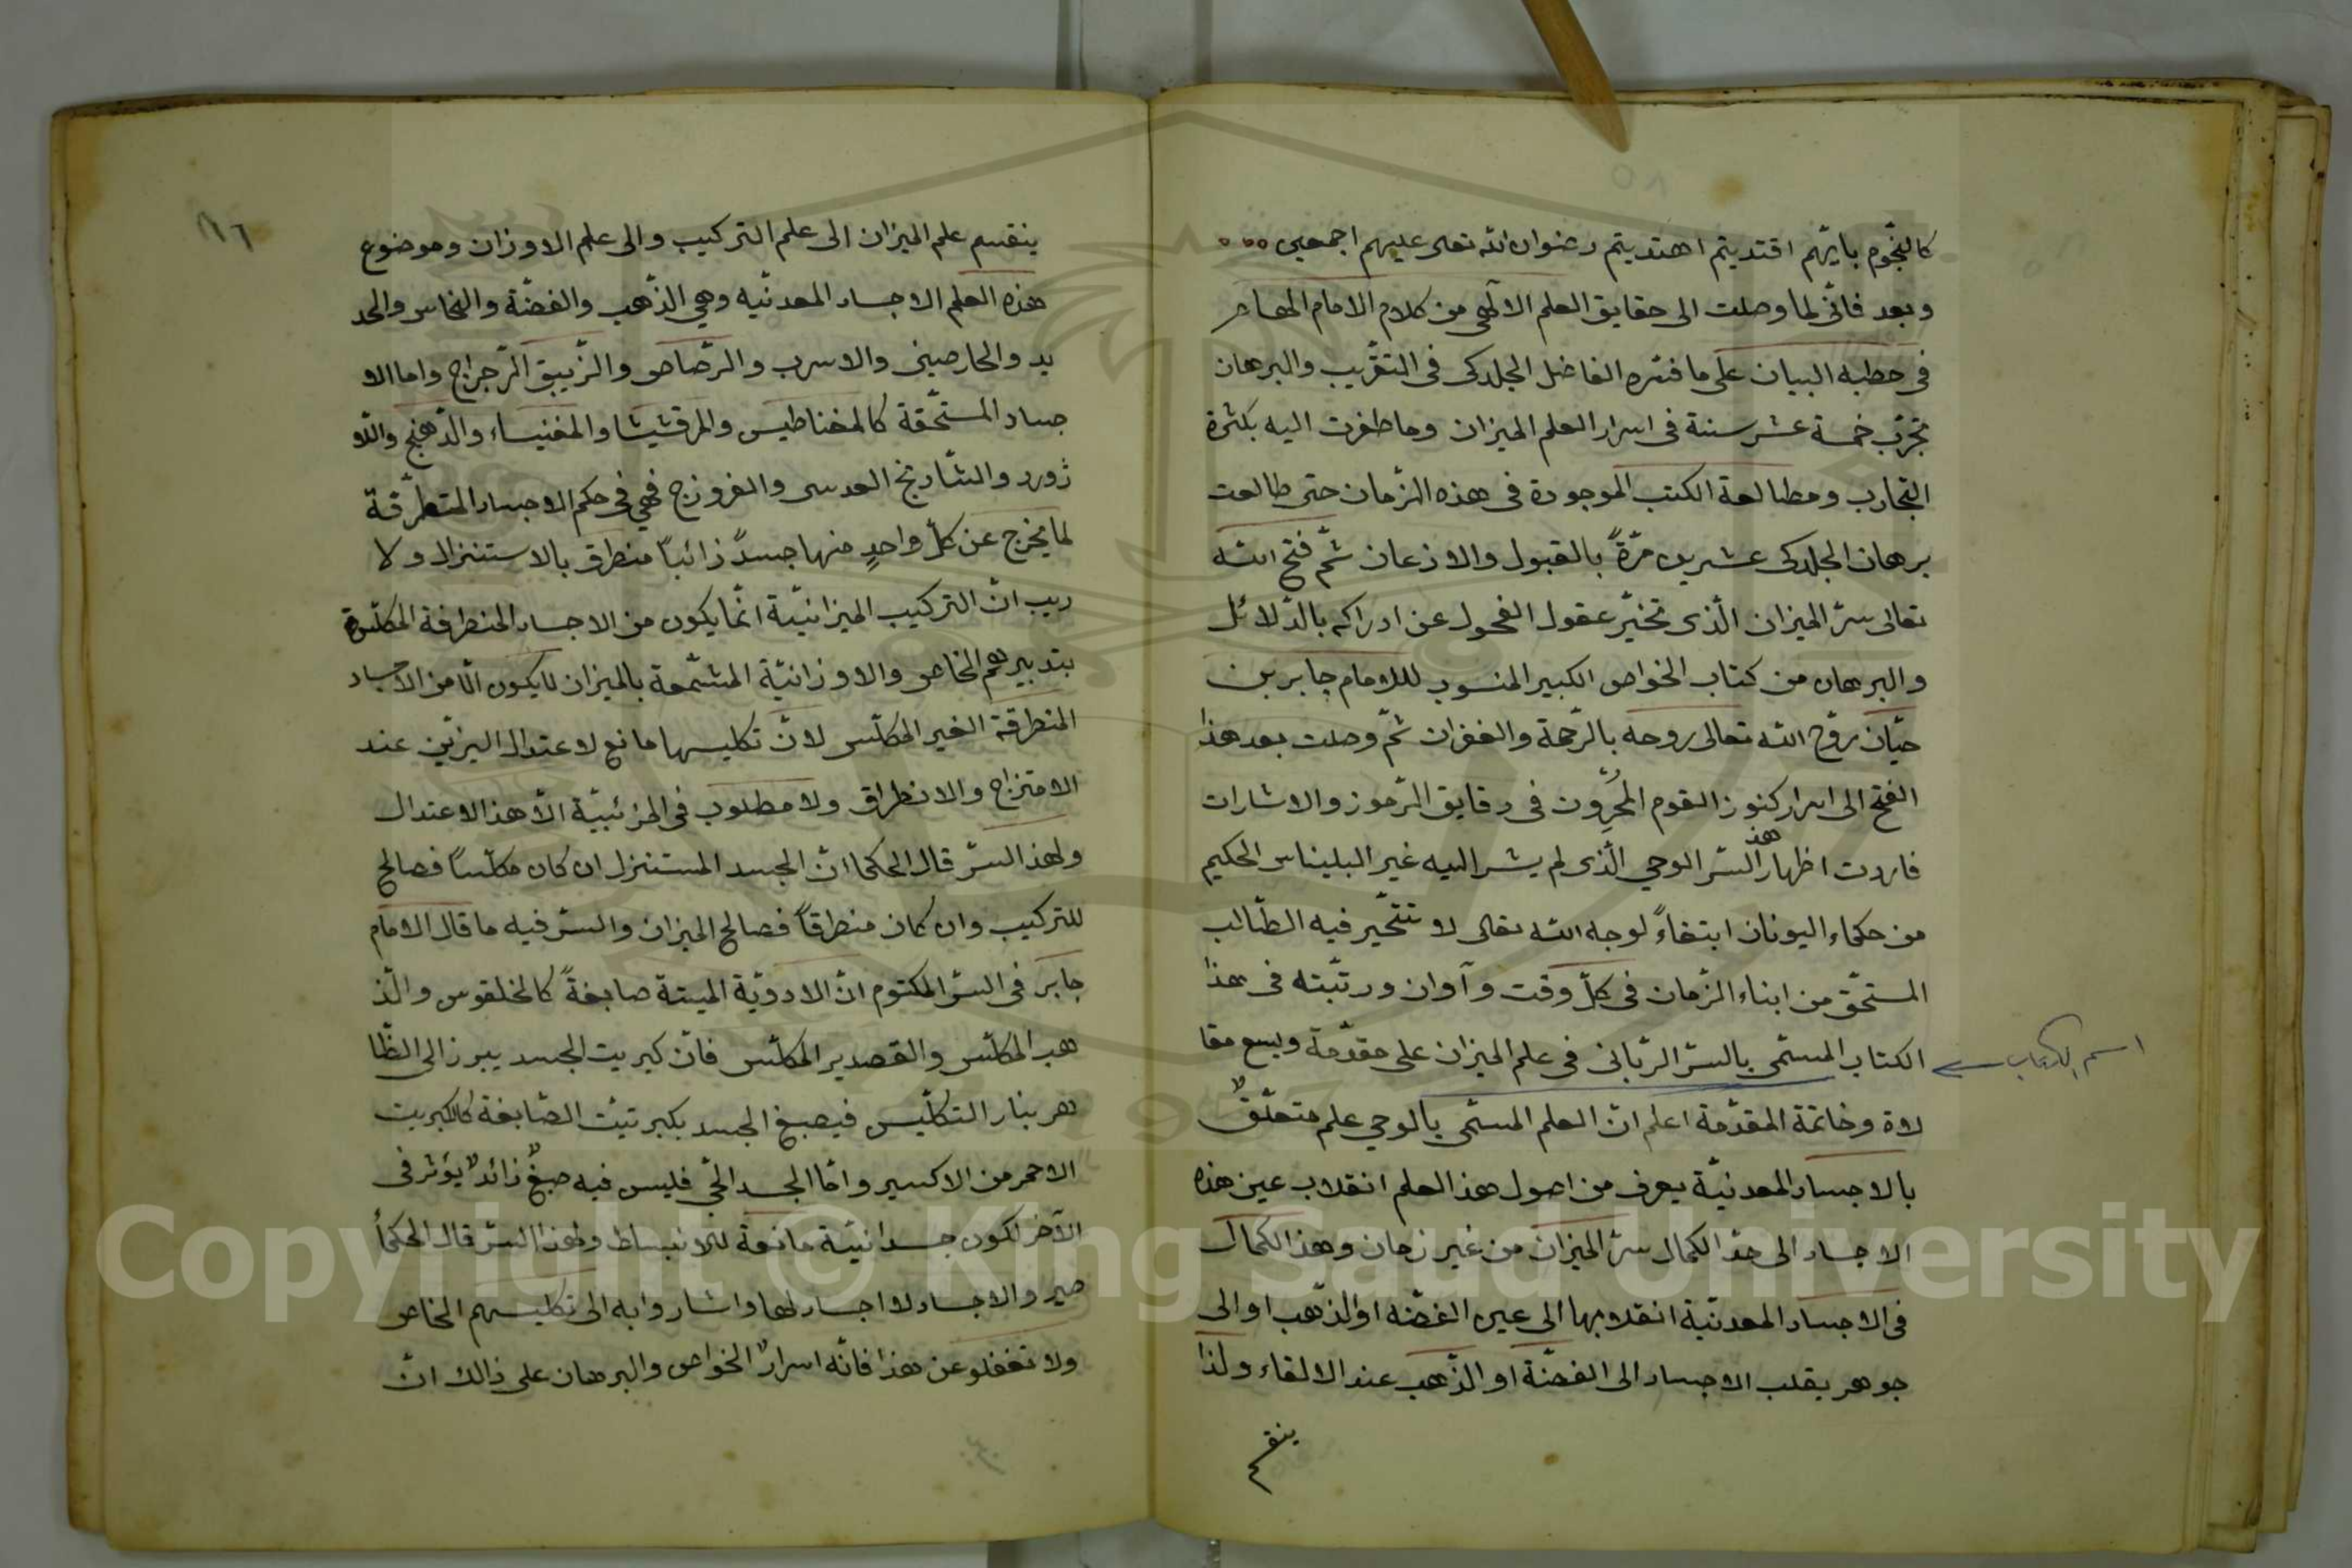 ٥٨
كالنّجوم بايّهم اقتديتم اهتديتم رضوان الله تعى عليهم اجمعين
وبعد فانّى لما وصلت الى حقايق العلم الالهى من كلام الامام المهاجر
فى خطبه البيان على ما فسّره الفاضل الجلدكى فى التقريب والبرهان
تجرّب خمسة عشر سنة فى اسرار العلم الميزان وما ظفرت اليه بكثرة
التجارب ومطالعة الكتب الموجودة فى هذه الزمان حتى طالعت
برهان الجلدكى عشرين مرّةً بالقبول والاذعان ثمّ فتح الله
تعالى سرّ الميزان الّذى تحيّر عقول الفحول عن ادراكه بالدّلائل
والبرهان من كتاب الخواص الكبير المنسوب للامام جابر بن
حيّان روّح الله تعالى روحه بالرّحمة والغفران ثمّ وصلت بعد هذا
الفتح الى اسرار كنوز القوم فى دقايق الرّموز والاشارات
فاردت اظهار هذ السّر الوحي الّذى لم يشر اليه غير البليناس الحكيم
من حكماء اليونان ابتغاءً لوجه الله تعالى لا تتحّير فيه الطّالب
المستحّق من ابناء الزّمان فى كلّ وقت وآوان ورتّبته فى هذا
الكتاب المسمّى بالسّر الرّبانى فى علم الميزان على مقدّمة وسبع مقا
اسم الكتاب
لاة وخاتمة المقدّمة اعلم انّ العلم المسمّى بالوحي علم متعلّقٌ
بالاجساد المعدنيّة يعرف من اصول هذ العلم انقلاب عين هذه
الاجساد الى حدّ الكمال سرّ الميزان من غير زمان وهذ الكمال
فى الاجساد المعدنيّة انقلابها الى عين الفضّه او الذّهب او الى
جوهر يقلب الاجساد الى الفضّة او الذّهب عند الالقاء ولذا
ينقسم
ينقسم علم الميزان الى علم التركيب والى علم الاوزان وموضوع
هذه العلم الاجساد المعدنّيه وهي الذّهب والفضّة والنحاس والحد
يد والخارصينى والاسرب والرّصاص والزّيبق الرّجراج واما الا
جساد المستحّقة كالمغناطيس والمرقشيشا والمغنيساء والدّهنج واللّا
ژورد والشّادنج العدسى والفروزج فهي فى حكم الاجساد المتطرّقة
لما يخرج عن كلّ واحدٍ منها جسدً ذائباً منطرق بالاستنزال ولا
ريب انّ التركيب الميزانيّة انّما يكون من الاجساد المنطرفة المكلّسة
بتدبيرهم الخاص والاوزانيّة المشمّعة بالميزان لا يكون الّا من الاجساد
المنطرقة الغير المكلّس لانّ تكليسها مانع لاعتدال اليزيّن عند
الامتزاج والانطراق ولا مطلوب فى الجزئييّة الّا هذ الاعتدال
ولهذ السّر قال الحكما انّ الجسد المستنزل ان كان مكلّساً فصالح
للتركيب وان كان منطرقاً فصالح الميزان والسّر فيه ما قال الامام
جابر فى السّر المكتوم انّ الادويّة الميتة صابغةً كالخلقوس والذّ
هب المكلّس والقصدير المكلّس فانّ كبريت الجسد يبرز الى الظّا
هر بنار التكلّيس فيصبغ الجسد بكبرتيّت الصّابغة كالكبريت
الاحمر من الاكسير وامّا الجسد الحّي فليس فيه صبغٌ زائدٌ يؤثر فى
الآخر لكون جسدانيّة مانعة للانبساط ولهذ السّر قال الحكمأ
صيروا الاجساد لا اجساد لها واشاروا به الى تكليسهم الخاص
ولا تغفلو عن هذا فانّه اسرارٌ الخواص والبرهان على ذالك انّ
Copyright © King Saud University